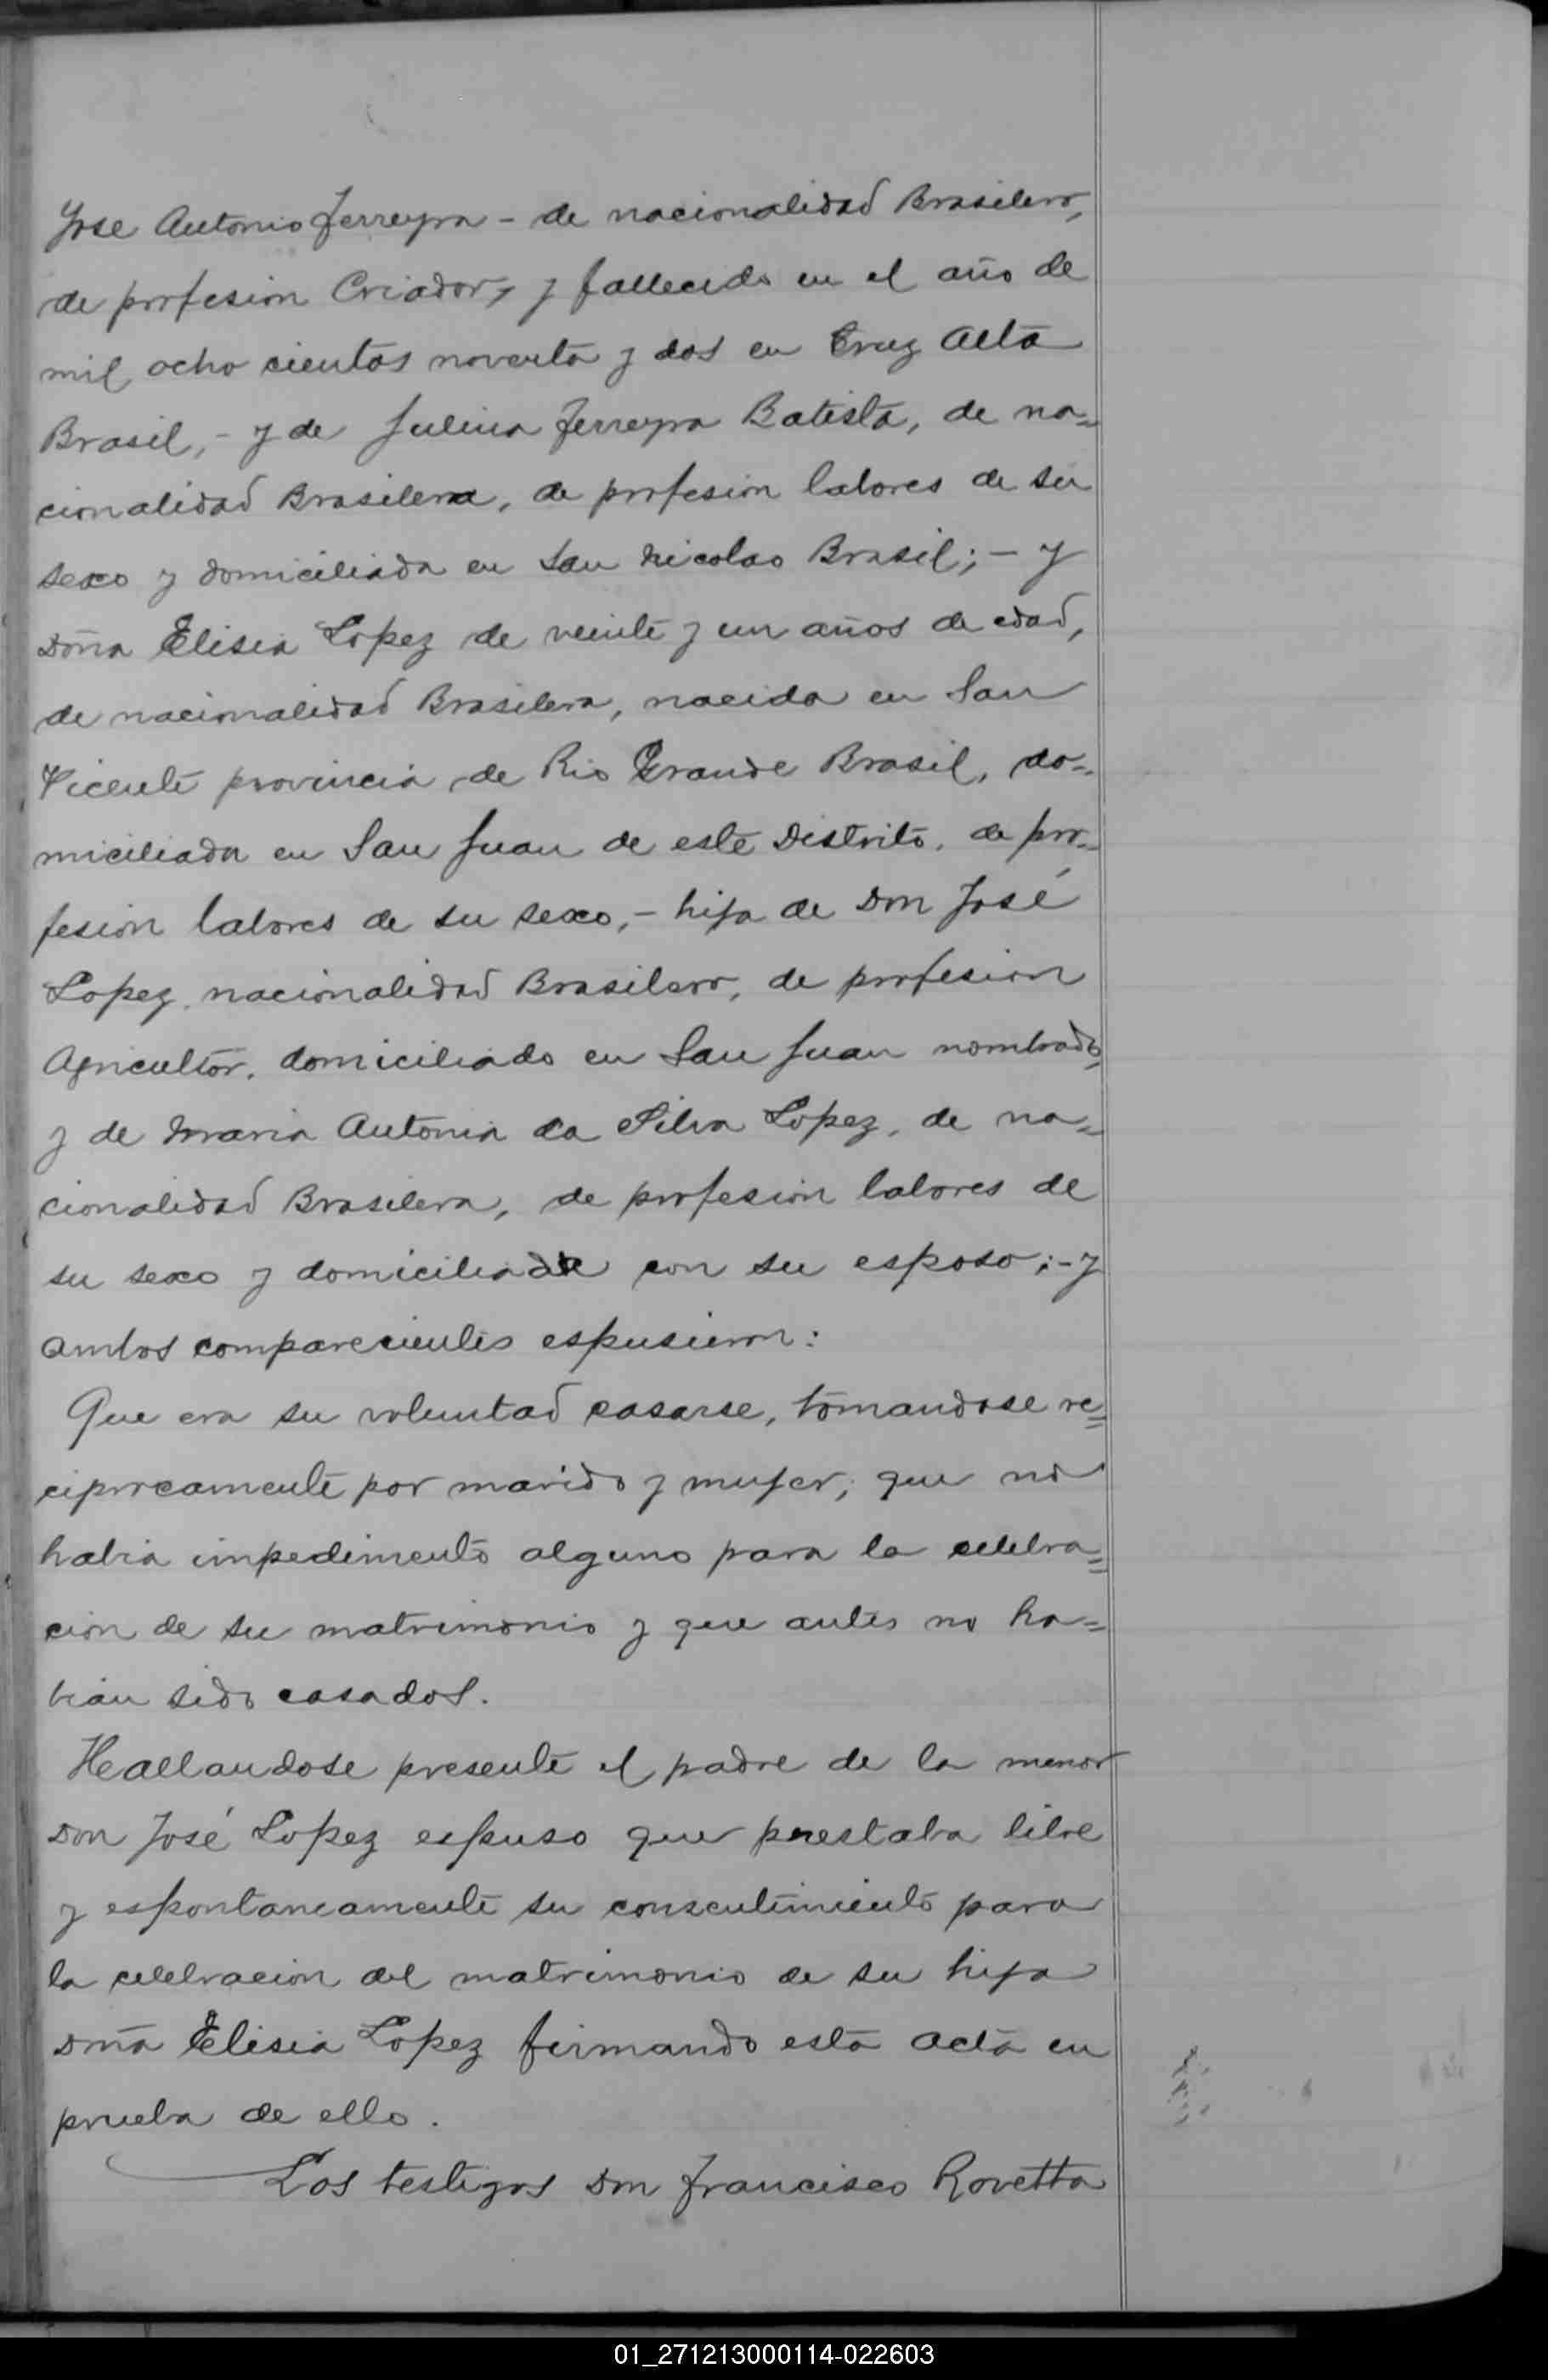 Jose Antonio Ferreyra - de nacionalidad Brasilero,
de profesion Criador, y fallecido en el año de
mil ocho cientos noventa y dos en Cruz Alta
Brasil, - y de Julina Ferreyra Batista, de na=
cionalidad Brasilera, de profesion labores de su
sexo y domiciliada en San Nicolao Brasil; - y
Doña Elisia Lopez de veinte y un años de edad,
de nacionalidad Brasilera, nacida en San
Vicente provincia de Rio Grande Brasil, do=
miciliada en San Juan de este Distrito, de pro=
fesion labores de su sexo, - hija de Don José
Lopez, nacionalidad Brasilero, de profesion
Agricultor, domiciliado en San Juan nombrado,
y de Maria Antonia da Silva Lopez, de na=
cionalidad Brasilera, de profesion labores de
su sexo y domiciliada con su esposo; - y
ambos comparecientes espusieron:
Que era su voluntad casarse, tomandose re=
ciprocamente por marido y mujer; que no
habia impedimento alguno para la celebra=
cion de su matrimonio y que antes no ha=
bian sido casados.
Hallandose presente el padre de la menor
Don José Lopez espuso que prestaba libre
y espontaneamente su consentimiento para
la celebracion del matrimonio de su hija
Dña Elisia Lopez firmando esta acta en
prueba de ello.
Los testigos Don Francisco Rovetta
01_271213000114-022603